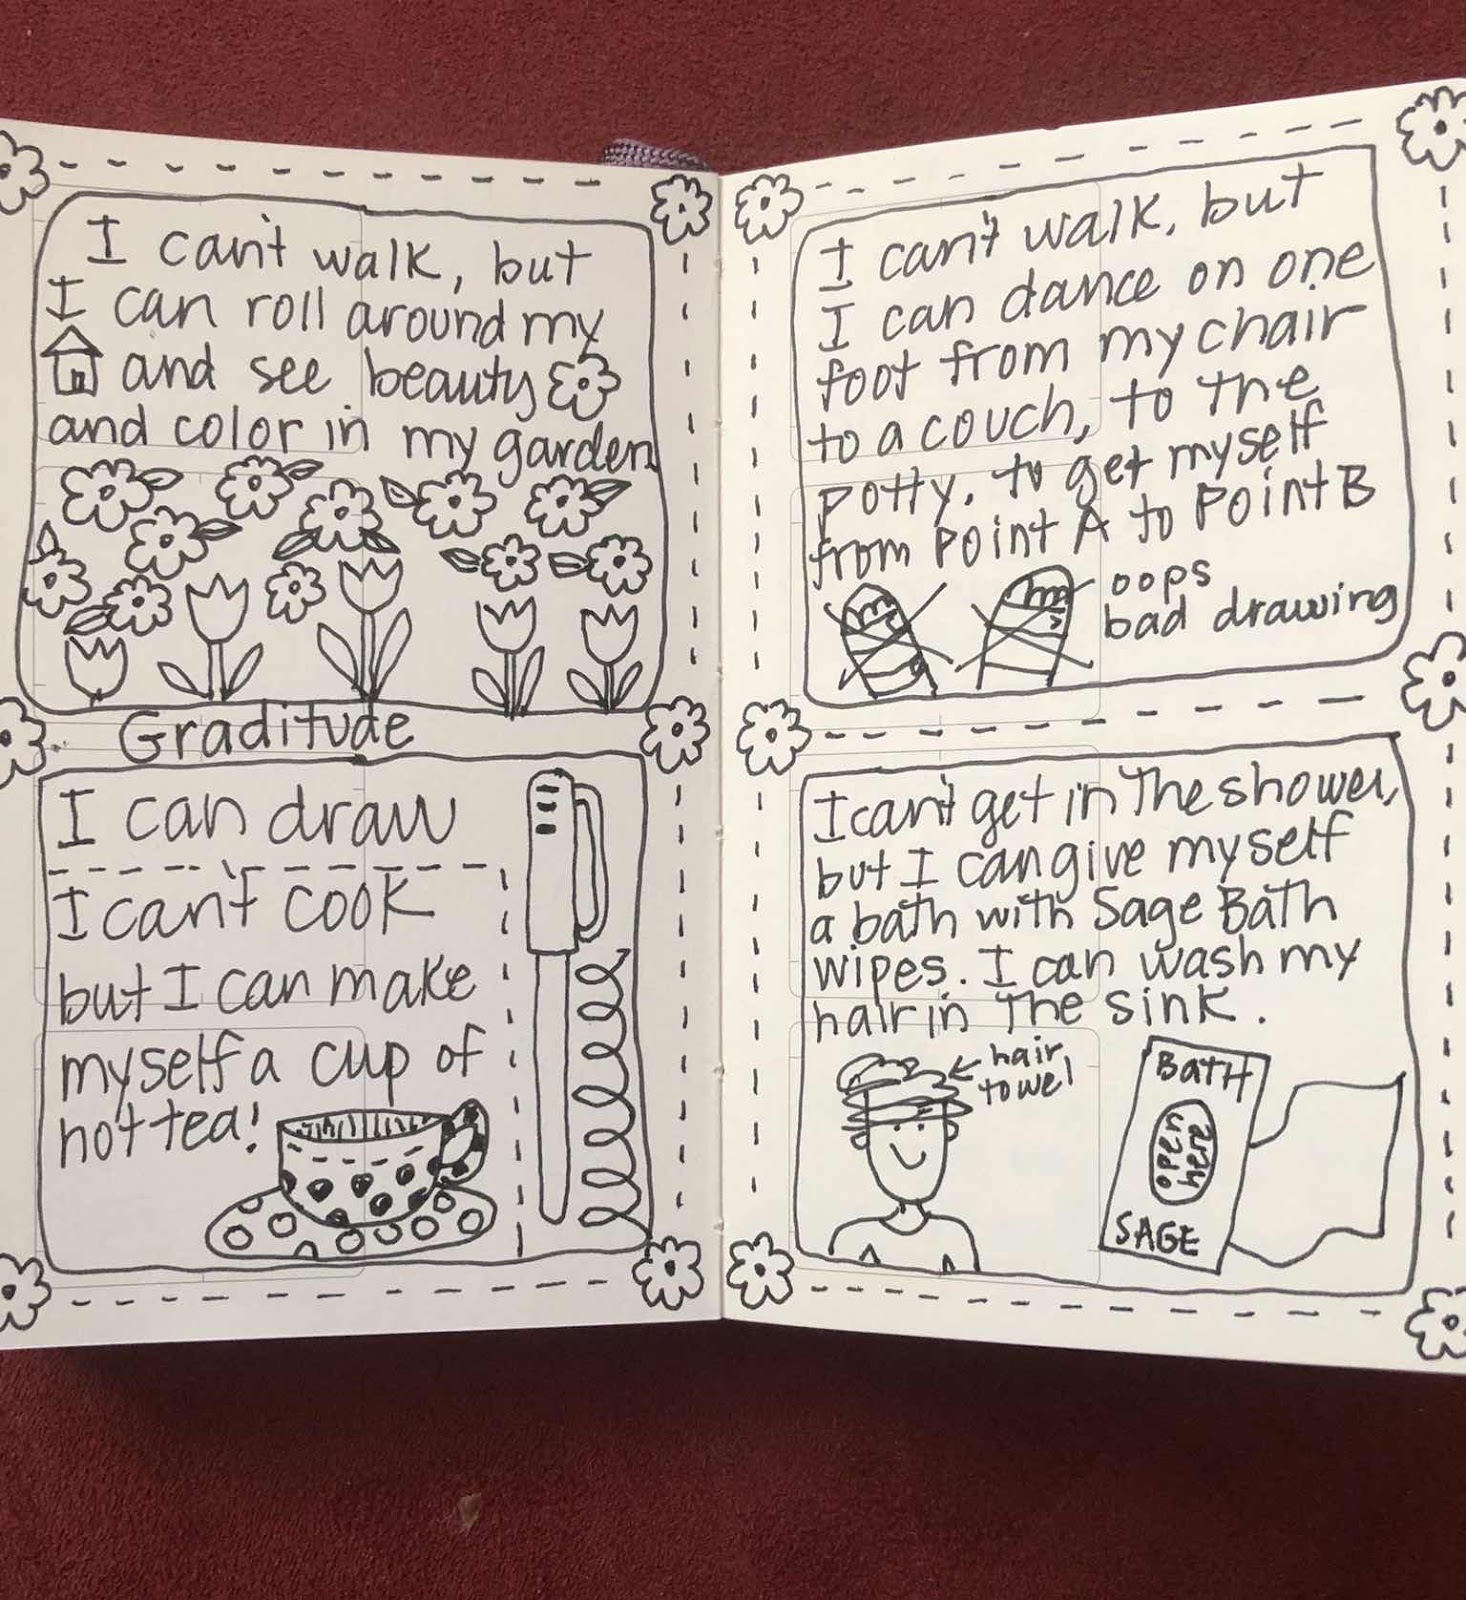 I can't walk, but
I can roll around my
and see beauty
and color in my garden
Graditude
I can draw
I can't cook
but I can make
myself a cup of
hot tea!
I can't walk, but
I can dance on one
foot from my chair
to a couch, to the
potty, to get myself
from Point A to Point B
oops
bad drawing
I can't get in the shower,
but I can give myself
a bath with Sage Bath
wipes. I can wash my
hair in the sink.
hair
towel
BATH
open
here
SAGE